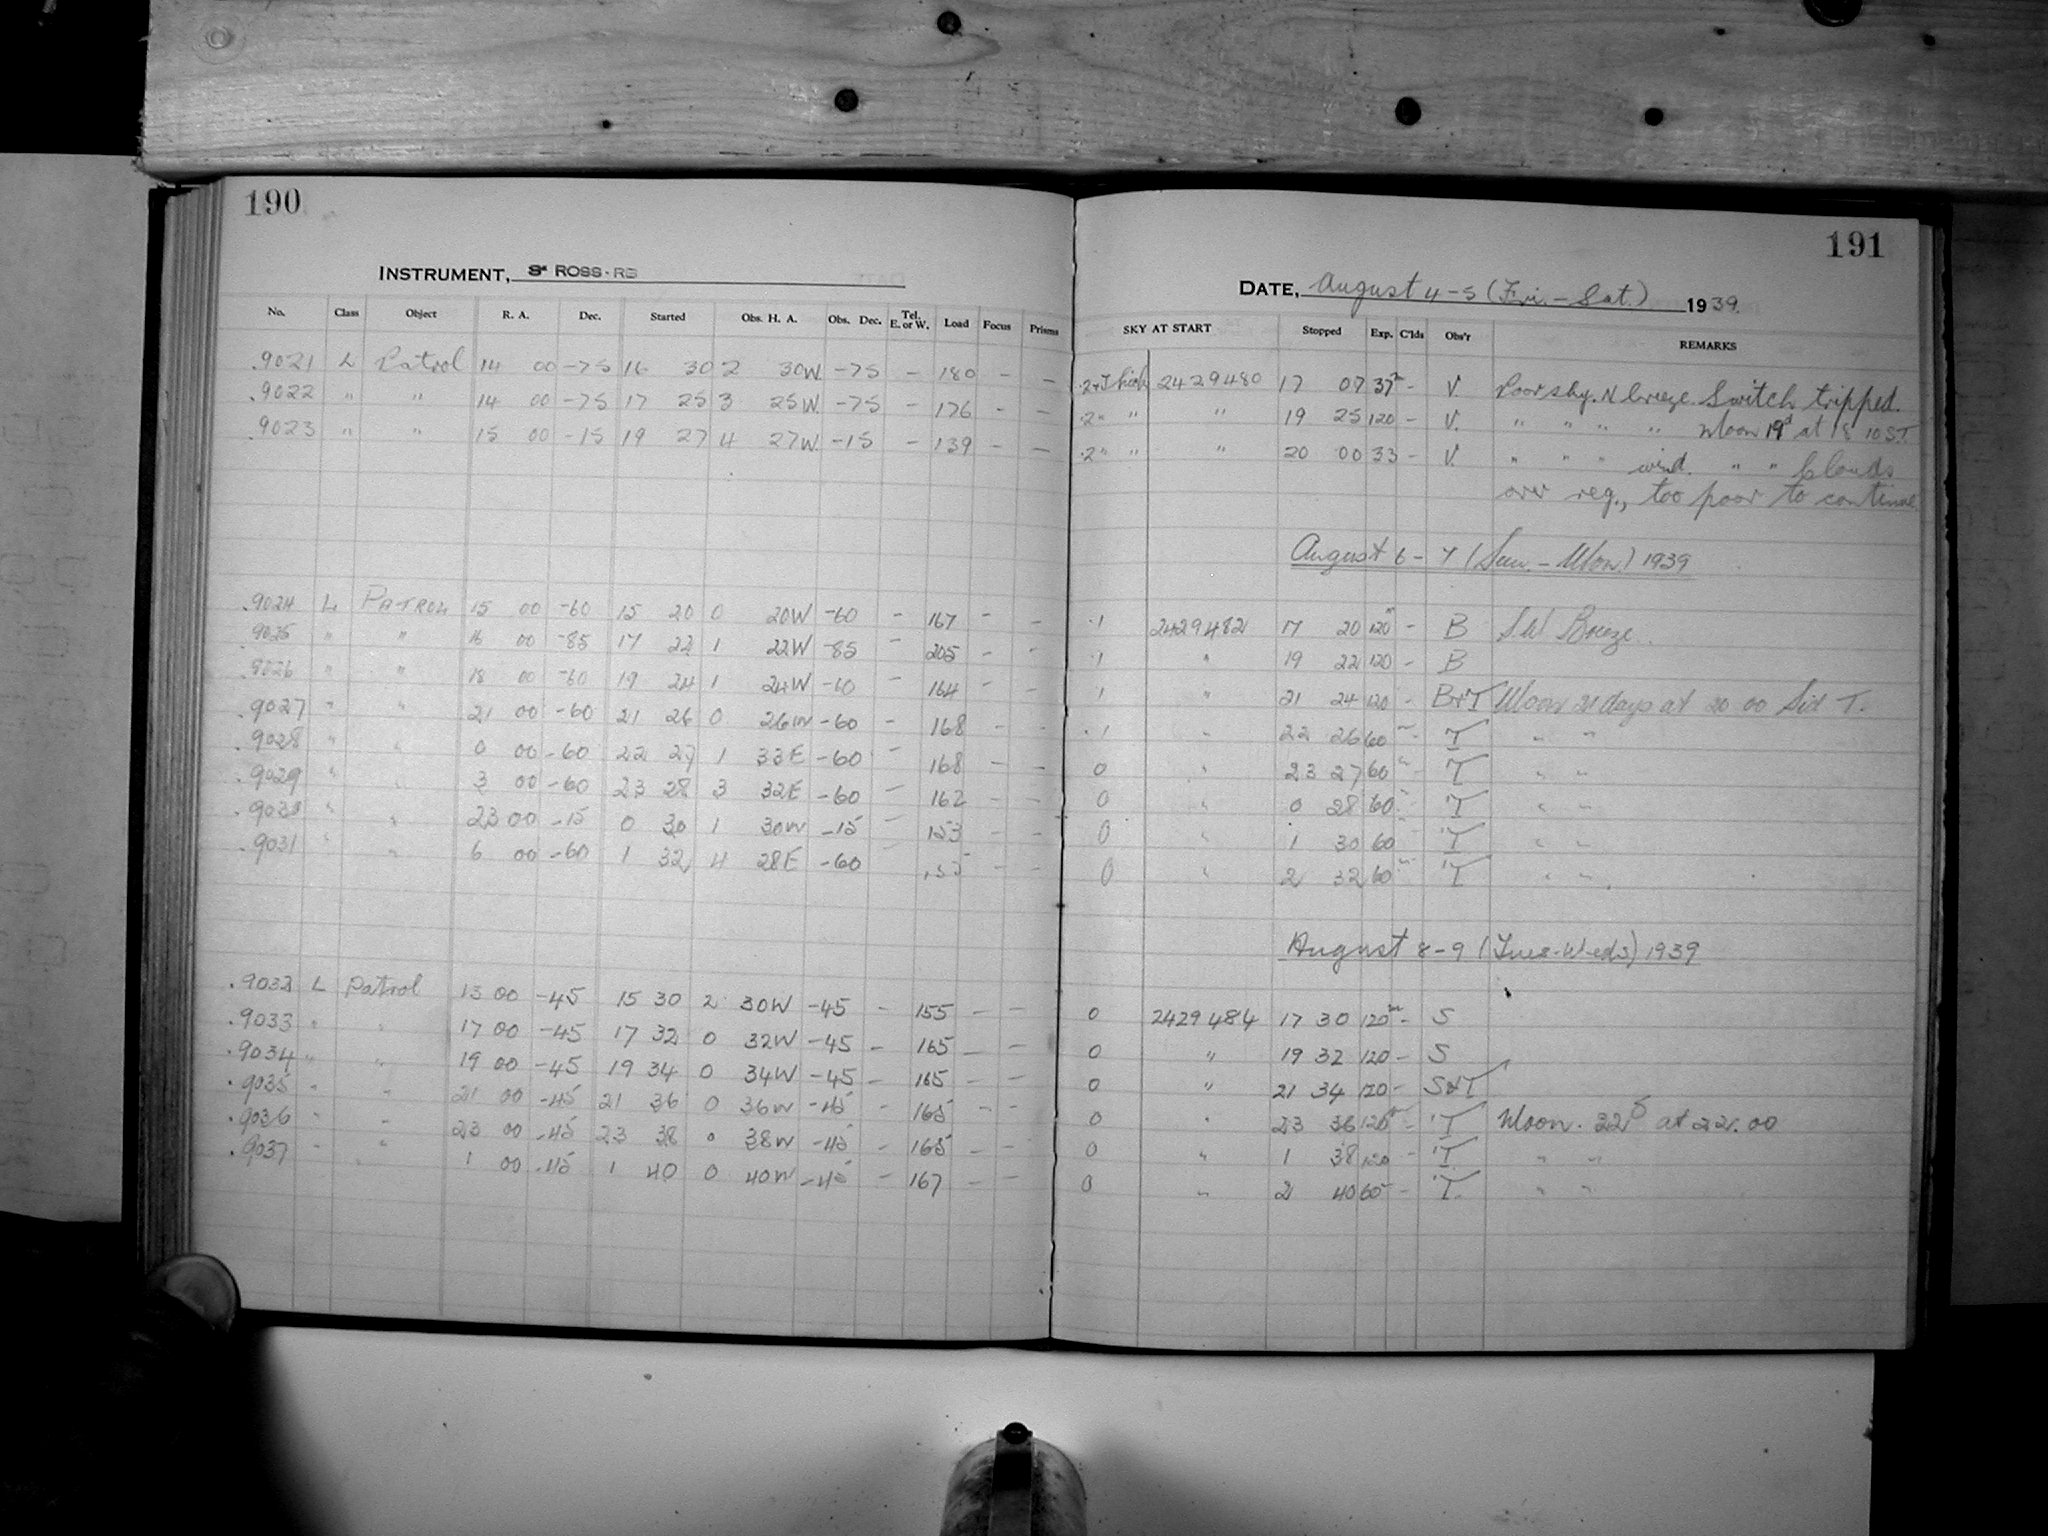 190
INSTRUMENT, 3" ROSS-RB
No. Class Object R. A. Dec. Started Obs. H. A. Obs. Dec. Tel. E. or W. Load Focus Prisms
.9021 L Patrol 14 00 -75 16 30 2 30W -75 - 180 - -
.9022 " " 14 00 -75 17 25 3 25W -75 - 176 - -
.9023 " " 15 00 -15 19 27 4 27W -15 - 139 - -
.9024 L PATROL 15 00 -60 15 20 0 20W -60 - 167 - -
.9025 " " 16 00 -85 17 22 1 22W -85 - 205 - -
.9026 " " 18 00 -60 19 24 1 24W -60 - 164 - -
.9027 " " 21 00 -60 21 26 0 26W -60 - 168 - -
.9028 " " 0 00 -60 22 27 1 33E -60 - 168 - -
.9029 " " 3 00 -60 23 28 3 32E -60 - 162 - -
.9030 " " 23 00 -15 0 30 1 30W -15 - 153 - -
.9031 " " 6 00 -60 1 32 4 28E -60 - -
.9032 L Patrol 13 00 -45 15 30 2 30W -45 - 155 - -
.9033 " " 17 00 -45 17 32 0 32W -45 - 165 - -
.9034 " " 19 00 -45 19 34 0 34W -45 - 165 - -
.9035 " " 21 00 -45 21 36 0 36W -45 - 165 - -
.9036 " " 23 00 -45 23 38 0 38W -45 - 165 - -
.9037 " " 1 00 -45 1 40 0 40W -45 - 167 - -
191
DATE, August 4-5 (Fri. - Sat.) 1939.
SKY AT START Stopped Exp. C'lds Obs'r REMARKS
2429480 17 07 37m - V. Poor sky. N breeze. Switch tripped.
.2 " " " 19 25 120 - V. " " " " Moon 19d at 18 10 S.T.
.2 " " " 20 00 33 - V. " " " wind. " " Clouds
over reg., too poor to continue
August 6-7 (Sun. - Mon.) 1939
.1 2429482 17 20 120m - B SW Breeze.
.1 " 19 22 120 - B
1 " 21 24 120 - B+T Moon 21 days at 20 00 Sid T.
.1 " 22 26 60m - T " "
0 " 23 27 60 - T " "
0 " 0 28 60 - T " "
0 " 1 30 60 T " "
0 " 2 32 60 - T " "
August 8-9 (Tues-Weds) 1939
0 2429484 17 30 120m - S
0 " 19 32 120 - S
0 " 21 34 120 - S&T
0 " 23 36 120m - T Moon. 22d at 22.00
0 " 1 38 120 - T " "
0 " 2 40 60 - T. " "